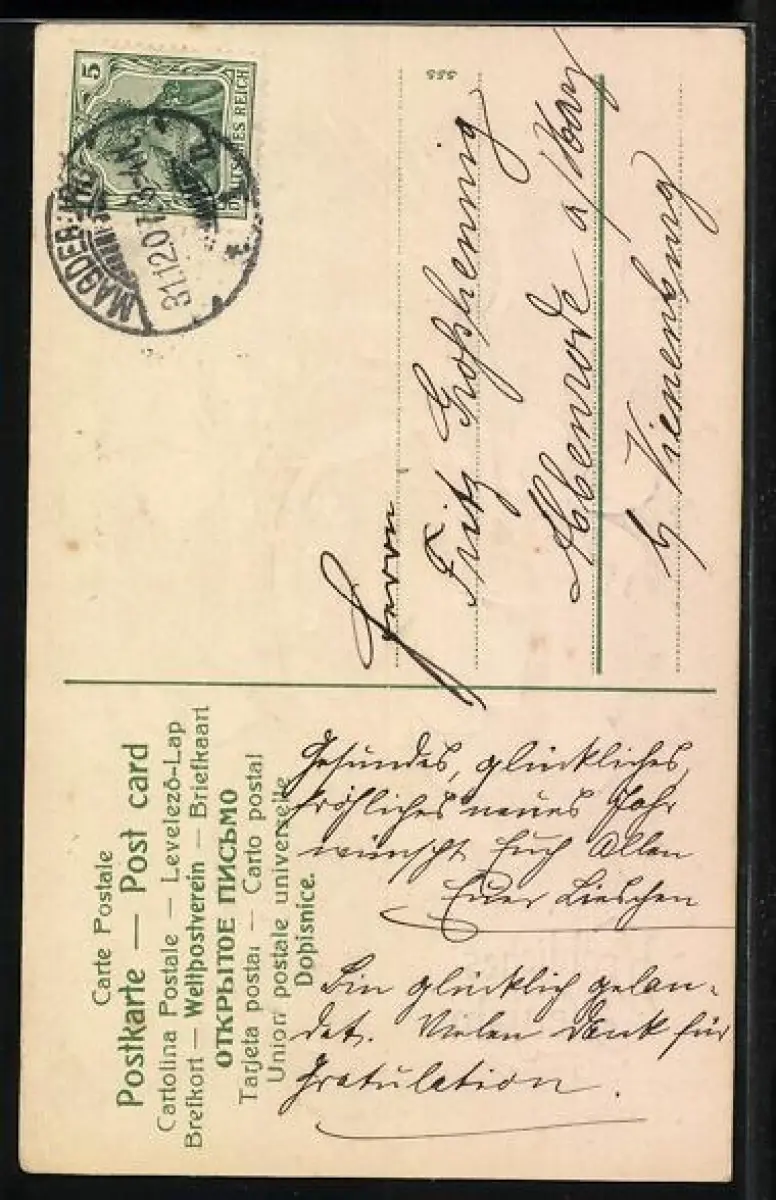 Carte Postale
Postkarte — Post card
Cartolina Postale — Levelező-Lap
Brefkort — Weltpostverein — Briefkaart
ОТКРЫТОЕ ПИСЬМО
Tarjeta postal — Carto postal
Union postale universelle
Dopisnice.
5
DEUTSCHES REICH
MAGDEB
31.12.07
555
Herrn
Fritz Großhennig
Abbenrode a/Harz
b/ Vienenburg
Gesundes, glückliches,
fröhliches neues Jahr
wünscht Euch Allen
Euer Lieschen
Bin glücklich gelan-
det. Vielen Dank für
Gratulation.